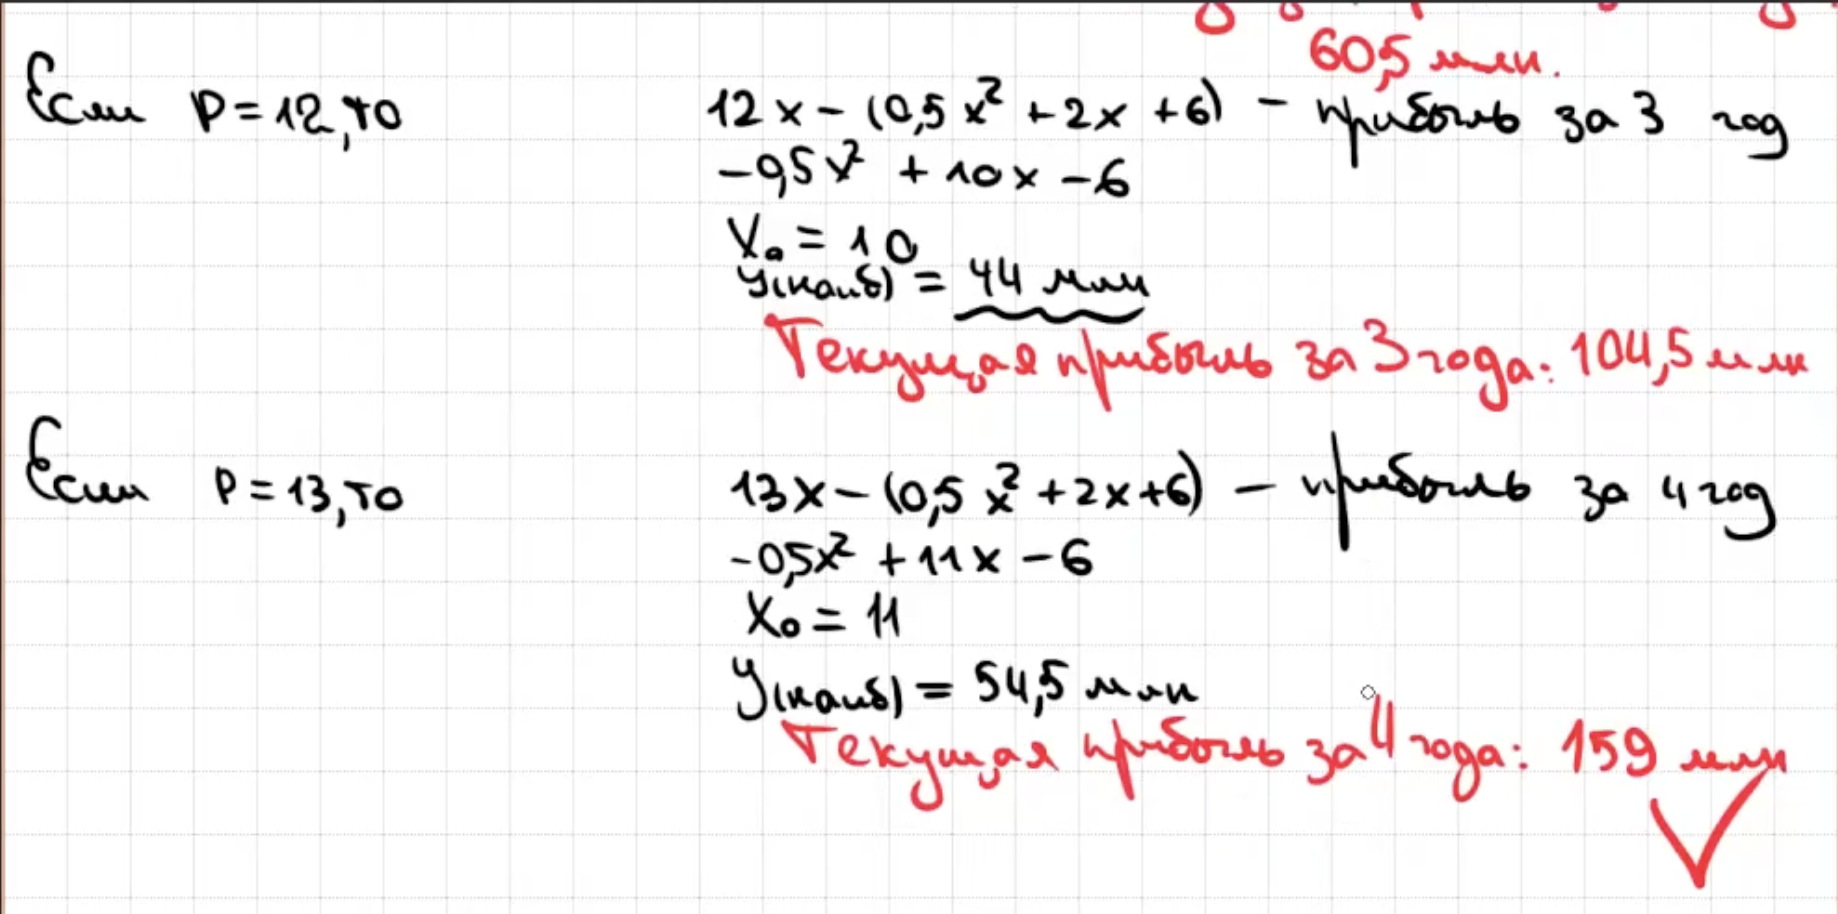 60,5 млн.
Если P = 12, то
12x - (0,5x² + 2x + 6) - прибыль за 3 год
-0,5x² + 10x - 6
X₀ = 10
y(наиб) = 44 млн
Текущая прибыль за 3 года: 104,5 млн
Если P = 13, то
13x - (0,5x² + 2x + 6) - прибыль за 4 год
-0,5x² + 11x - 6
X₀ = 11
y(наиб) = 54,5 млн
Текущая прибыль за 4 года: 159 млн